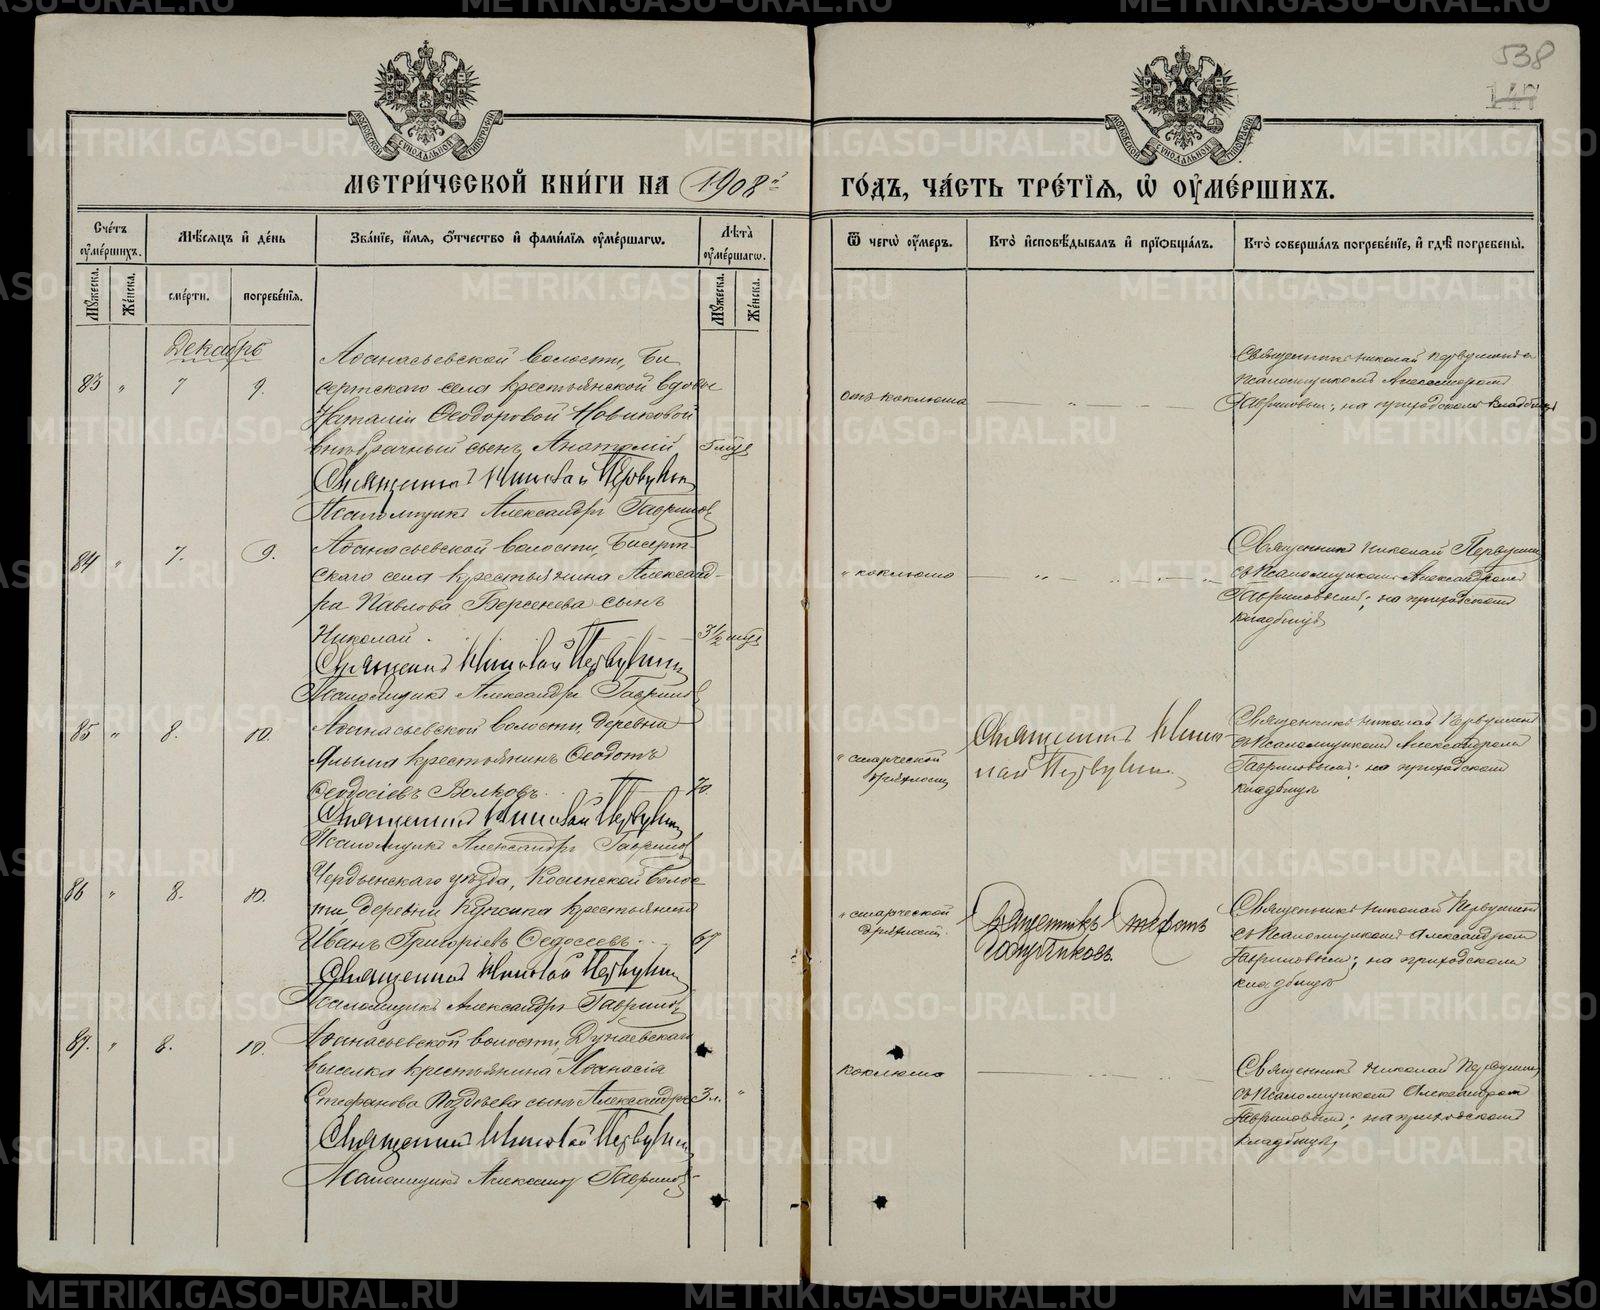 538
147
МОСКОВСКОЙ СѴНОДАЛЬНОЙ ТИПОГРАФІИ
МОСКОВСКОЙ СѴНОДАЛЬНОЙ ТИПОГРАФІИ
МЕТРИ́ЧЕСКОЙ КНИ́ГИ НА 1908й
ГО́ДЪ, ЧА́СТЬ ТРЕ́ТЇЯ, Ѡ҆ ОУ҆МЕ́РШИХЪ.
Сче́тъ оу҆ме́ршихъ.
Мꙋ́жеска.
Же́нска.
Мѣ́сяцъ и҆ де́нь
сме́рти.
погребе́нїя.
Зва́нїе, и҆́мя, ѻ҆́тчество и҆ фами́лїя оу҆ме́ршагѡ.
Лѣ́та оу҆ме́ршагѡ.
Мꙋ́жеска.
Же́нска.
Ѿ чегѡ̀ оу҆́меръ.
Кто̀ и҆сповѣ́дывалъ и҆ прїѡбща́лъ.
Кто̀ соверша́лъ погребе́нїе, и҆ гдѣ̀ погребены̀.
Декабрь
83 " 7 9.
Аѳанасьевской волости, Би
сертскаго села крестьянской вдовы
Наталіи Ѳеодоровой Новиковой
внѣбрачный сынъ Анатолій 5 мце
Священникъ Николай Первушин
Псаломщикъ Александръ Гаврилов
отъ коклюша
Священникъ Николай Первушинъ
Псаломщикомъ Александромъ
Гавриловым; на приходском кладбищѣ
84 " 7. 9.
Аѳанасьевской волости, Бисерт-
скаго села крестьянина Александ-
ра Павлова Берсенева сынъ
Николай 3½ мце
Священникъ Николай Первушин
Псаломщикъ Александръ Гаврилов
" коклюша
Священникъ Николай Первушин
съ Псаломщикомъ Александромъ
Гавриловымъ; на приходскомъ
кладбищѣ
85 " 8. 10.
Аѳанасьевской волости, деревни
крестьянинъ Ѳеодотъ
Ѳеодосіевъ Волковъ 70.
Священникъ Николай Первушин
Псаломщикъ Александръ Гаврилов
" старческой
дряхлости
Священникъ Нико-
лай Первушин.
Священникъ Николай Первушинъ
съ Псаломщикомъ Александромъ
Гавриловымъ; на приходском
кладбищѣ
86 " 8. 10.
Чердынскаго уѣзда, Косинской Волос
ти, деревни крестьянинъ
Иванъ Григоріевъ Федосеевъ 67
Священникъ Николай Первушин
Псаломщикъ Александръ Гаврилов
" старческой
дряхлост.
Священникъ
Священникъ Николай Первушинъ
съ Псаломщикомъ Александромъ
Гавриловым; на приходскомъ
кладбищѣ
87. " 8. 10.
Аѳанасьевской волости, Дунаевскаго
выселка крестьянина Аѳанасія
Стефанова сынъ Александръ 3 л. "
Священникъ Николай Первушин
Псаломщикъ Александръ Гаврилов
коклюша
Священник Николай Первушин
съ Псаломщиком Александром
Гавриловым; на приходском
кладбищѣ
METRIKI.GASO-URAL.RU